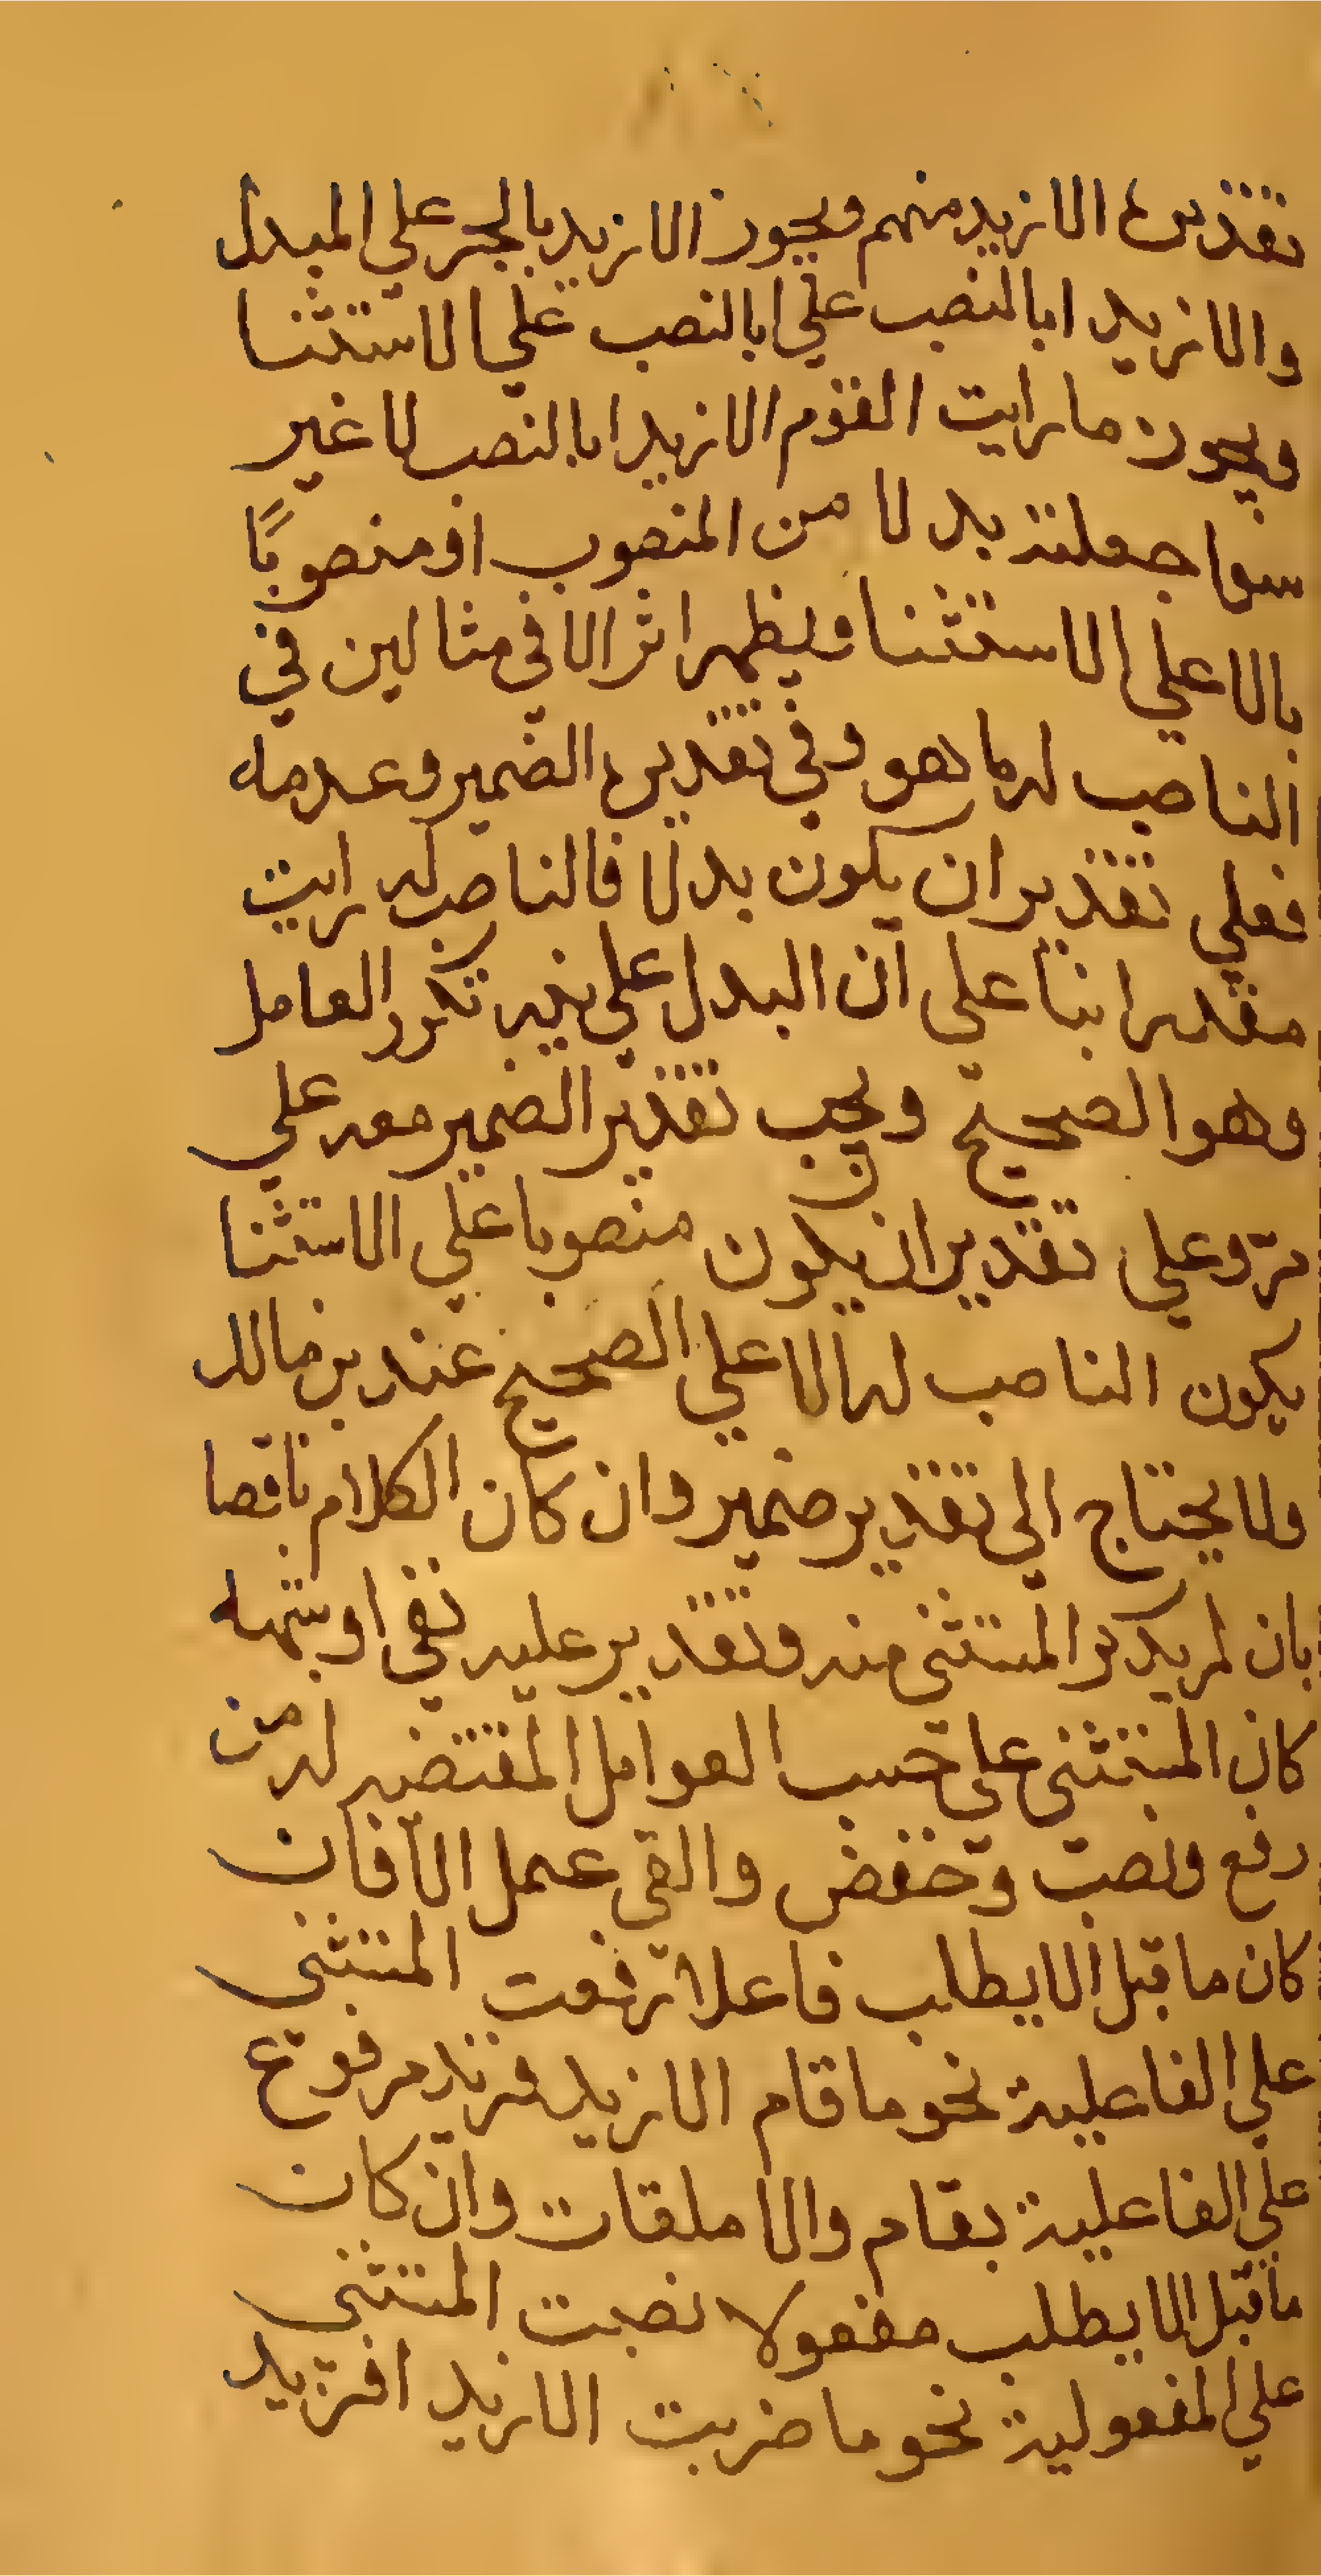 تقديره الا زيد منهم ويجوز الا زيد بالجر علي المبدل
والا زيد ا بالنصب علي ا بالنصب علي الاستثنا
ويجوز ما رايت القوم الا زيدا بالنصب لا غير
سوا جعلته بدلا من المنصوب او منصوبًا
بالا علي الاستثنا ويظهر اثر الا في مثالين في
الناصب له ما هو وفي تقديره الضمير وعدمه
فعلي تقدير ان يكون بدلا فالناصب له رايت
مقدرا بنا علي ان البدل علي نيه تكرر العامل
وهو الصحيح ويجب تقدير الضمير معه علي
مرّ وعلي تقدير ان يكون منصوبا علي الاستثنا
يكون الناصب له الا علي الصحيح عند بن مالك
ولا يحتاج الي تقدير ضمير وان كان الكلام ناقصا
بان لم يذكر المستثني منه وتقدير عليه نفي او شبهه
كان المستثني علي حسب العوامل المقتضيه له من
رفع ونصب وخفض والقي عمل الا فان
كان ما قبل الا يطلب فاعلا رفعت المستثني
علي الفاعلية نحو ما قام الا زيد فزيد مرفوع
علي الفاعلية بقام والا ملقات وان كان
ما قبل الا يطلب مفعولا نصبت المستثني
علي المفعولية نحو ما ضربت الا زيد افزيد